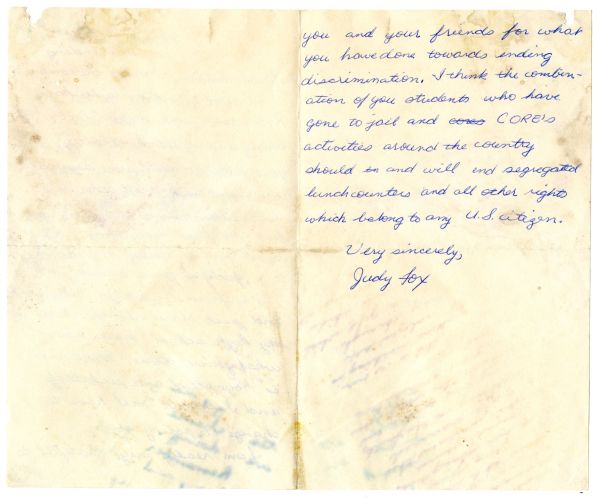 you and your friends for what
you have done towards ending
discrimination. I think the combin-
ation of you students who have
gone to jail and cores CORE's
activities around the country
should in and will end segregated
lunchcounters and all other rights
which belong to any U.S. citizen.
Very sincerely,
Judy Fox